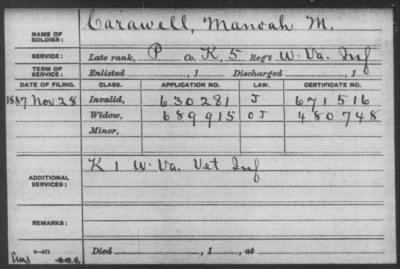 NAME OF SOLDIER: Carawell, Manoah M.
SERVICE: Late rank, P Co. K, 5 Reg't W. Va. Inf
TERM OF SERVICE: Enlisted , 1 Discharged , 1
DATE OF FILING. CLASS. APPLICATION NO. LAW. CERTIFICATE NO.
1887 Nov 28 Invalid, 630281 J 671516
Widow, 689915 OJ 480748
Minor,
ADDITIONAL SERVICES: K 1 W. Va. Vet Inf
REMARKS:
Died , 1 , at